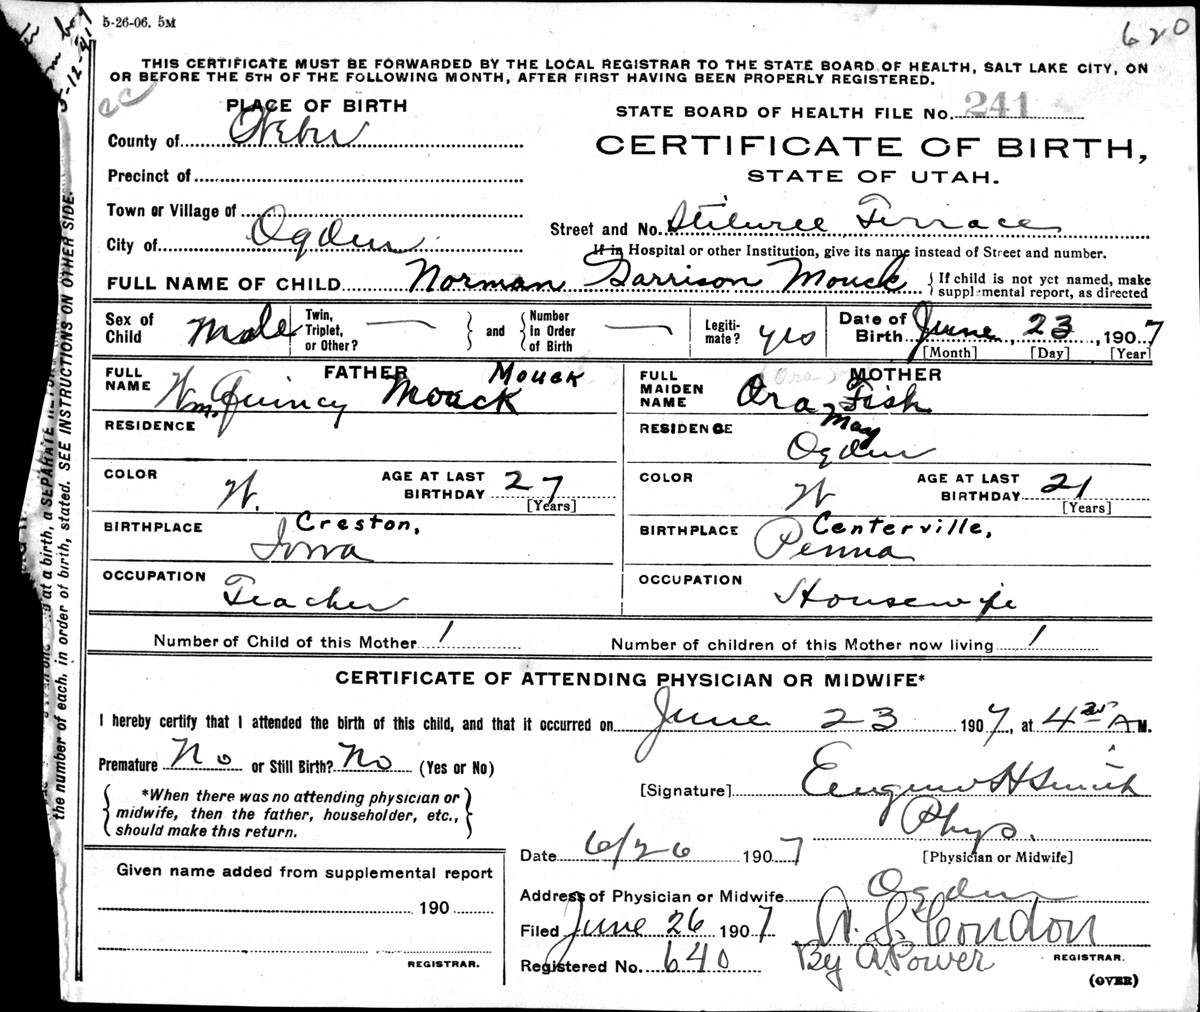 5-26-06. 5M
620
THIS CERTIFICATE MUST BE FORWARDED BY THE LOCAL REGISTRAR TO THE STATE BOARD OF HEALTH, SALT LAKE CITY, ON
OR BEFORE THE 5TH OF THE FOLLOWING MONTH, AFTER FIRST HAVING BEEN PROPERLY REGISTERED.
PLACE OF BIRTH
STATE BOARD OF HEALTH FILE No. 241
County of Weber
CERTIFICATE OF BIRTH,
Precinct of
STATE OF UTAH.
Town or Village of
Street and No. Terrace
City of Ogden
If in Hospital or other Institution, give its name instead of Street and number.
FULL NAME OF CHILD Norman Garrison Mouck
{ If child is not yet named, make
supplemental report, as directed
Sex of Child Male
Twin, Triplet, or Other? —
and
Number in Order of Birth —
Legitimate? yes
Date of Birth June 23, 1907
[Month] [Day] [Year]
FATHER
FULL NAME Wm. Quincy Mouck Mouck
RESIDENCE
COLOR W.
AGE AT LAST BIRTHDAY 27
[Years]
BIRTHPLACE Creston, Iowa
OCCUPATION Teacher
MOTHER
FULL MAIDEN NAME Ora May Fish
RESIDENCE Ogden
COLOR W
AGE AT LAST BIRTHDAY 21
[Years]
BIRTHPLACE Centerville, Penna
OCCUPATION Housewife
Number of Child of this Mother 1
Number of children of this Mother now living 1
CERTIFICATE OF ATTENDING PHYSICIAN OR MIDWIFE*
I hereby certify that I attended the birth of this child, and that it occurred on June 23 1907, at 4 35 A M.
Premature No or Still Birth? No (Yes or No)
[Signature] Eugene H Smith
*When there was no attending physician or
midwife, then the father, householder, etc.,
should make this return.
Phys.
[Physician or Midwife]
Date 6/26 1907
Given name added from supplemental report
190
REGISTRAR.
Address of Physician or Midwife Ogden
Filed June 26 1907
A. S. Condon
REGISTRAR.
Registered No. 640
By A. Power
(OVER)
at a birth, a SEPARATE RETURN
the number of each, in order of birth, stated. SEE INSTRUCTIONS ON OTHER SIDE.